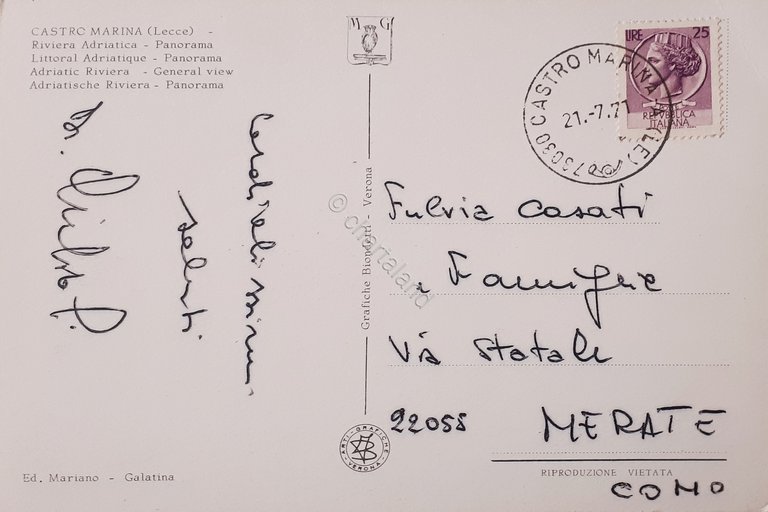 CASTRO MARINA (Lecce) -
Riviera Adriatica - Panorama
Littoral Adriatique - Panorama
Adriatic Riviera - General view
Adriatische Riviera - Panorama
M G
LIRE 25
REPVBBLICA
ITALIANA
73030 CASTRO MARINA (LE)
21.-7.71
Cordialissimi
saluti
Grafiche Biondetti - Verona
© chartaland
Fulvia Casati
e Famiglia
Via Statale
22055 MERATE
COMO
ARTI-GRAFICHE
VERONA
Ed. Mariano - Galatina
RIPRODUZIONE VIETATA